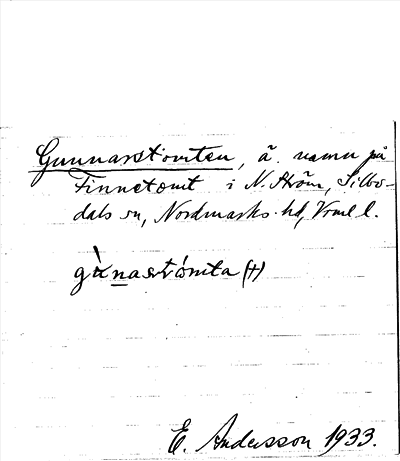 Gunnarstomten, ä. namn på
Finnetomt i N. Ström, Silbo-
dals sn, Nordmarks hd, Vrml l.
gùnastómta (†)
E. Andersson 1933.